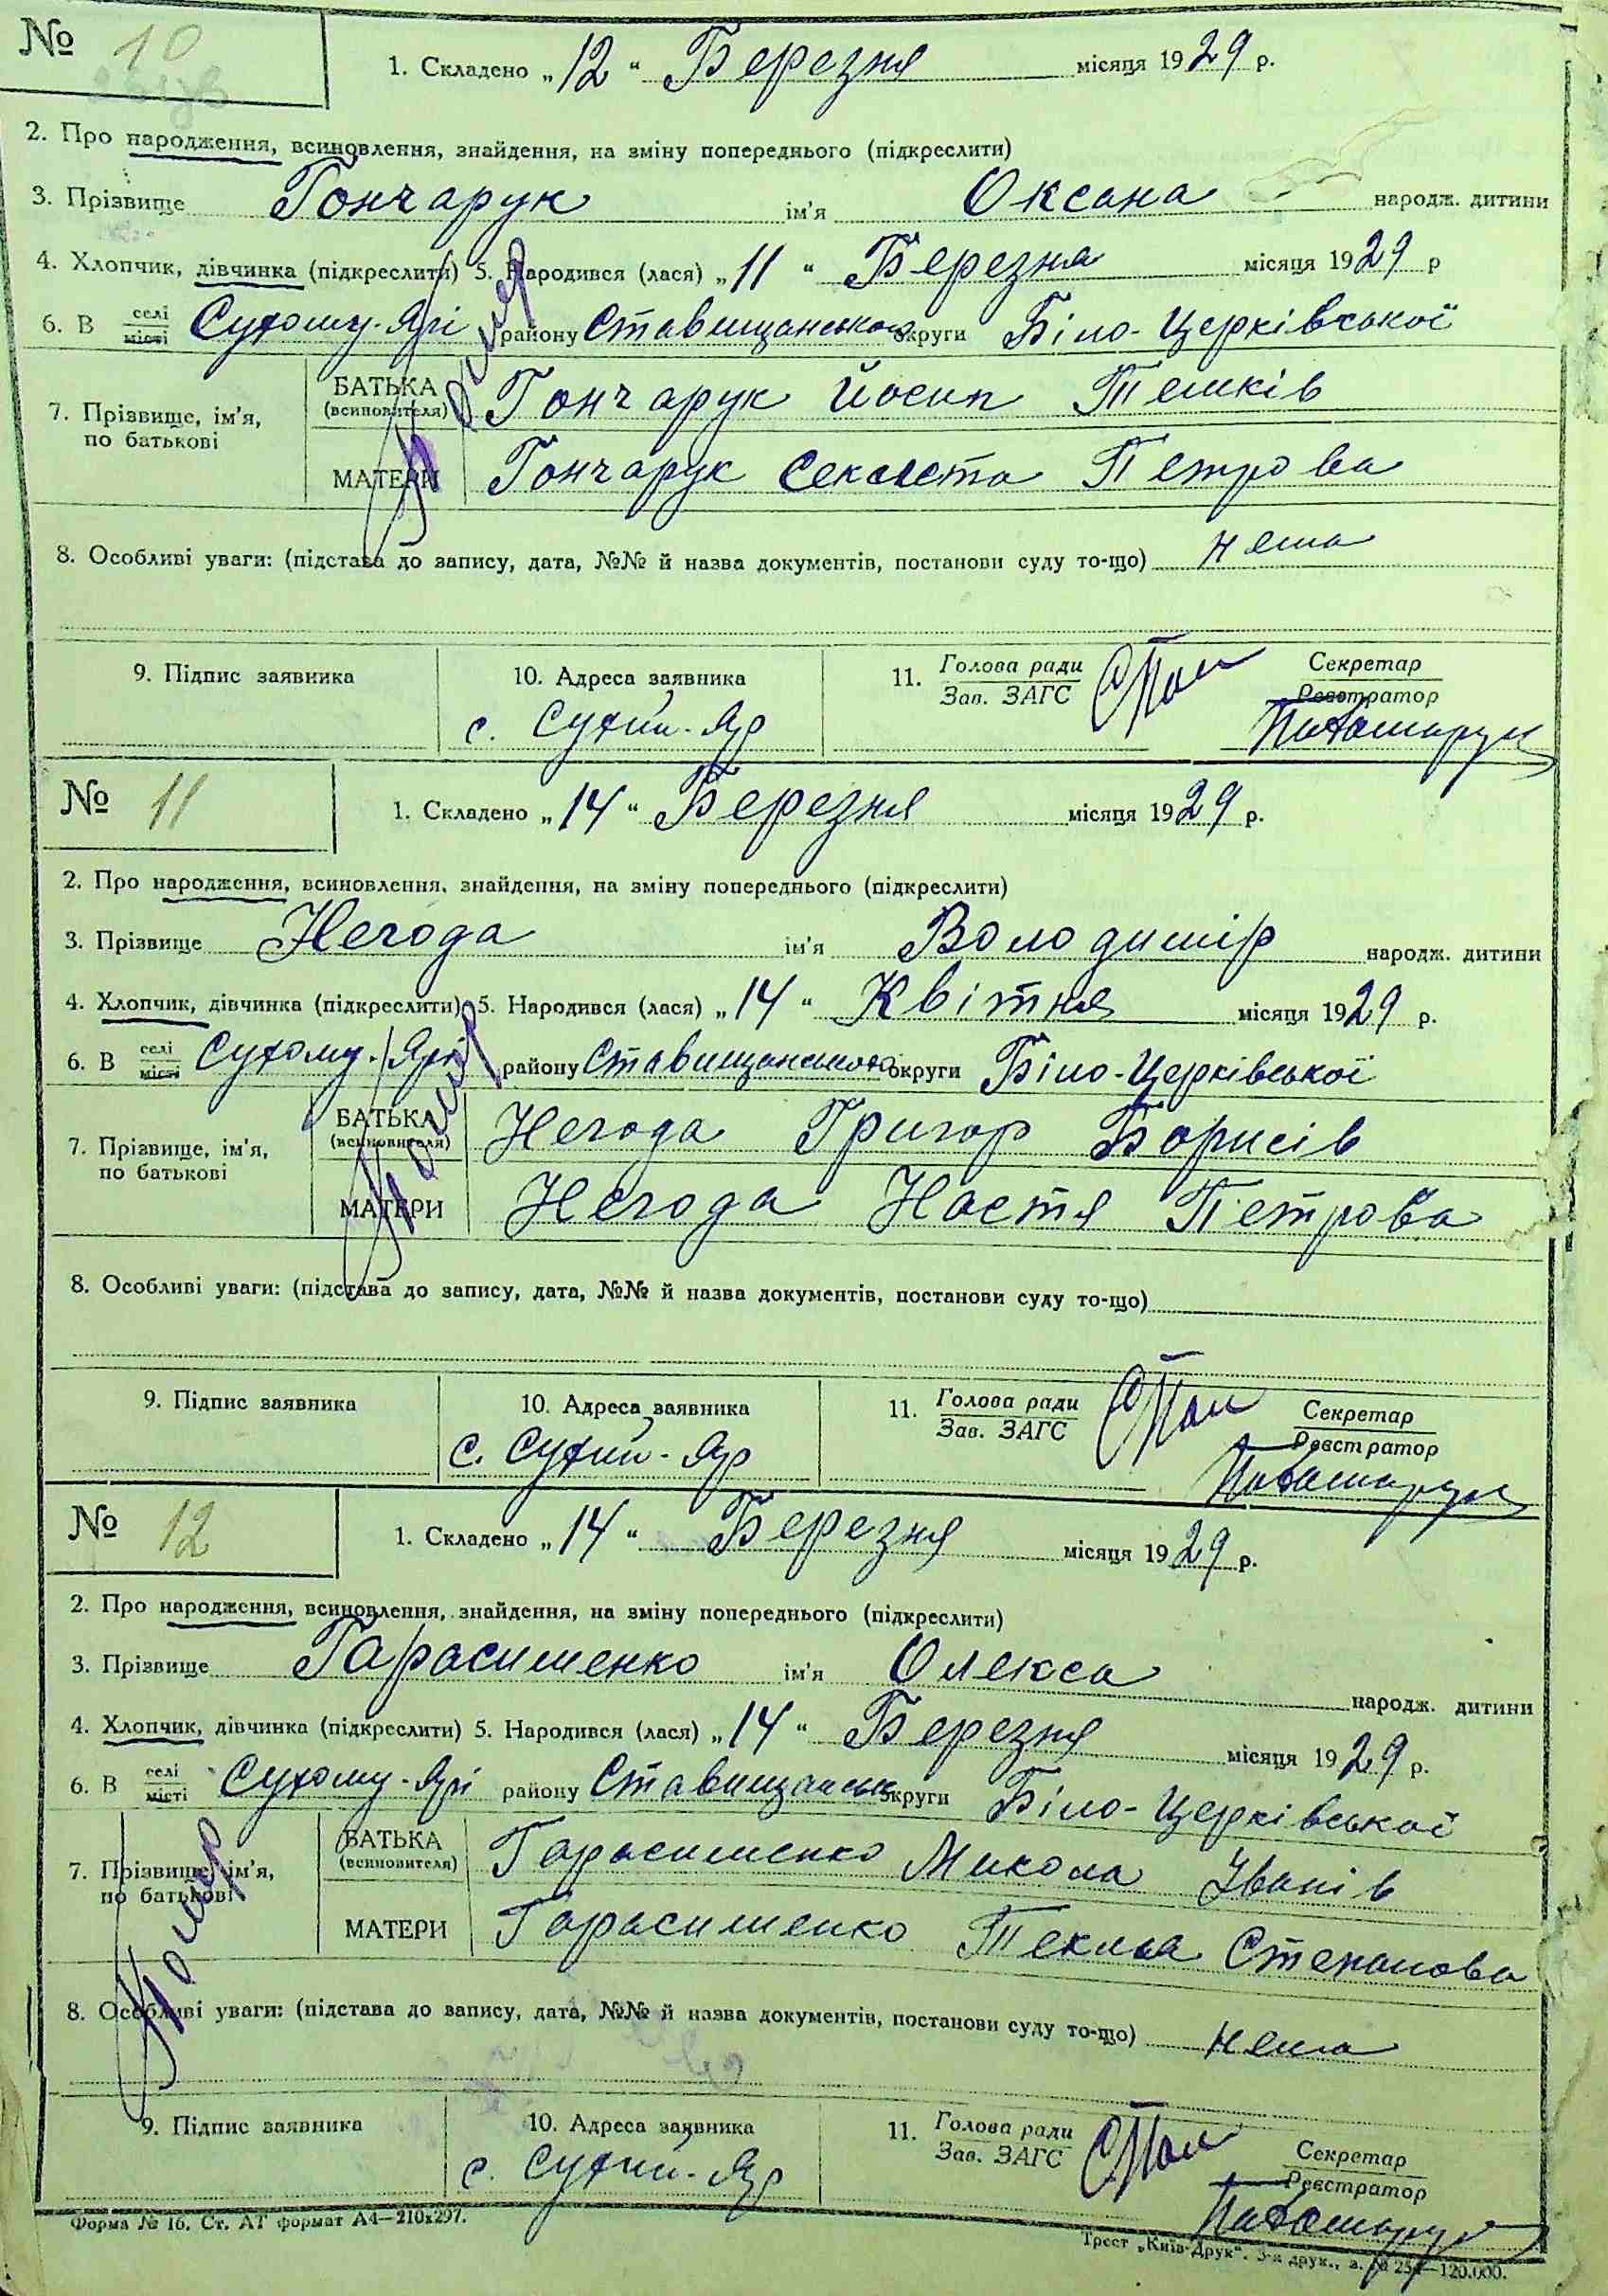 № 10
1. Складено „12“ Березня місяця 1929 р.
2. Про народження, всиновлення, знайдення, на зміну попереднього (підкреслити)
3. Прізвище Гончарук ім'я Оксана народж. дитини
4. Хлопчик, дівчинка (підкреслити) 5. Народився (лася) „11“ Березня місяця 1929 р
6. В селі місті Сухому-Ярі району Ставищанського округи Біло-Церківської
7. Прізвище, ім'я, по батькові
БАТЬКА (всиновителя) Гончарук Йосип
МАТЕРИ Гончарук Петрова
8. Особливі уваги: (підстава до запису, дата, №№ й назва документів, постанови суду то-що) нема
9. Підпис заявника
10. Адреса заявника
с. Сухий-Яр
11. Голова ради Зав. ЗАГС
Секретар Реєстратор
№ 11
1. Складено „14“ Березня місяця 1929 р.
2. Про народження, всиновлення, знайдення, на зміну попереднього (підкреслити)
3. Прізвище Негода ім'я Володимір народж. дитини
4. Хлопчик, дівчинка (підкреслити) 5. Народився (лася) „14“ Квітня місяця 1929 р.
6. В селі місті Сухому-Ярі району Ставищанського округи Біло-Церківської
7. Прізвище, ім'я, по батькові
БАТЬКА (всиновителя) Негода Григор Борисів
МАТЕРИ Негода Настя Петрова
8. Особливі уваги: (підстава до запису, дата, №№ й назва документів, постанови суду то-що)
9. Підпис заявника
10. Адреса заявника
с. Сухий-Яр
11. Голова ради Зав. ЗАГС
Секретар Реєстратор
№ 12
1. Складено „14“ Березня місяця 1929 р.
2. Про народження, всиновлення, знайдення, на зміну попереднього (підкреслити)
3. Прізвище Гарасименко ім'я Олекса народж. дитини
4. Хлопчик, дівчинка (підкреслити) 5. Народився (лася) „14“ Березня місяця 1929 р.
6. В селі місті Сухому-Ярі району Ставищанськ округи Біло-Церківської
7. Прізвище, ім'я, по батькові
БАТЬКА (всиновителя) Гарасименко Микола Іванів
МАТЕРИ Гарасименко Текля Степанова
Помер
8. Особливі уваги: (підстава до запису, дата, №№ й назва документів, постанови суду то-що) нема
9. Підпис заявника
10. Адреса заявника
с. Сухий-Яр
11. Голова ради Зав. ЗАГС
Секретар Реєстратор
Форма № 16. Ст. АТ формат А4—210х297.
Трест „Київ-Друк“. 3-я друк., з. № 120.000.